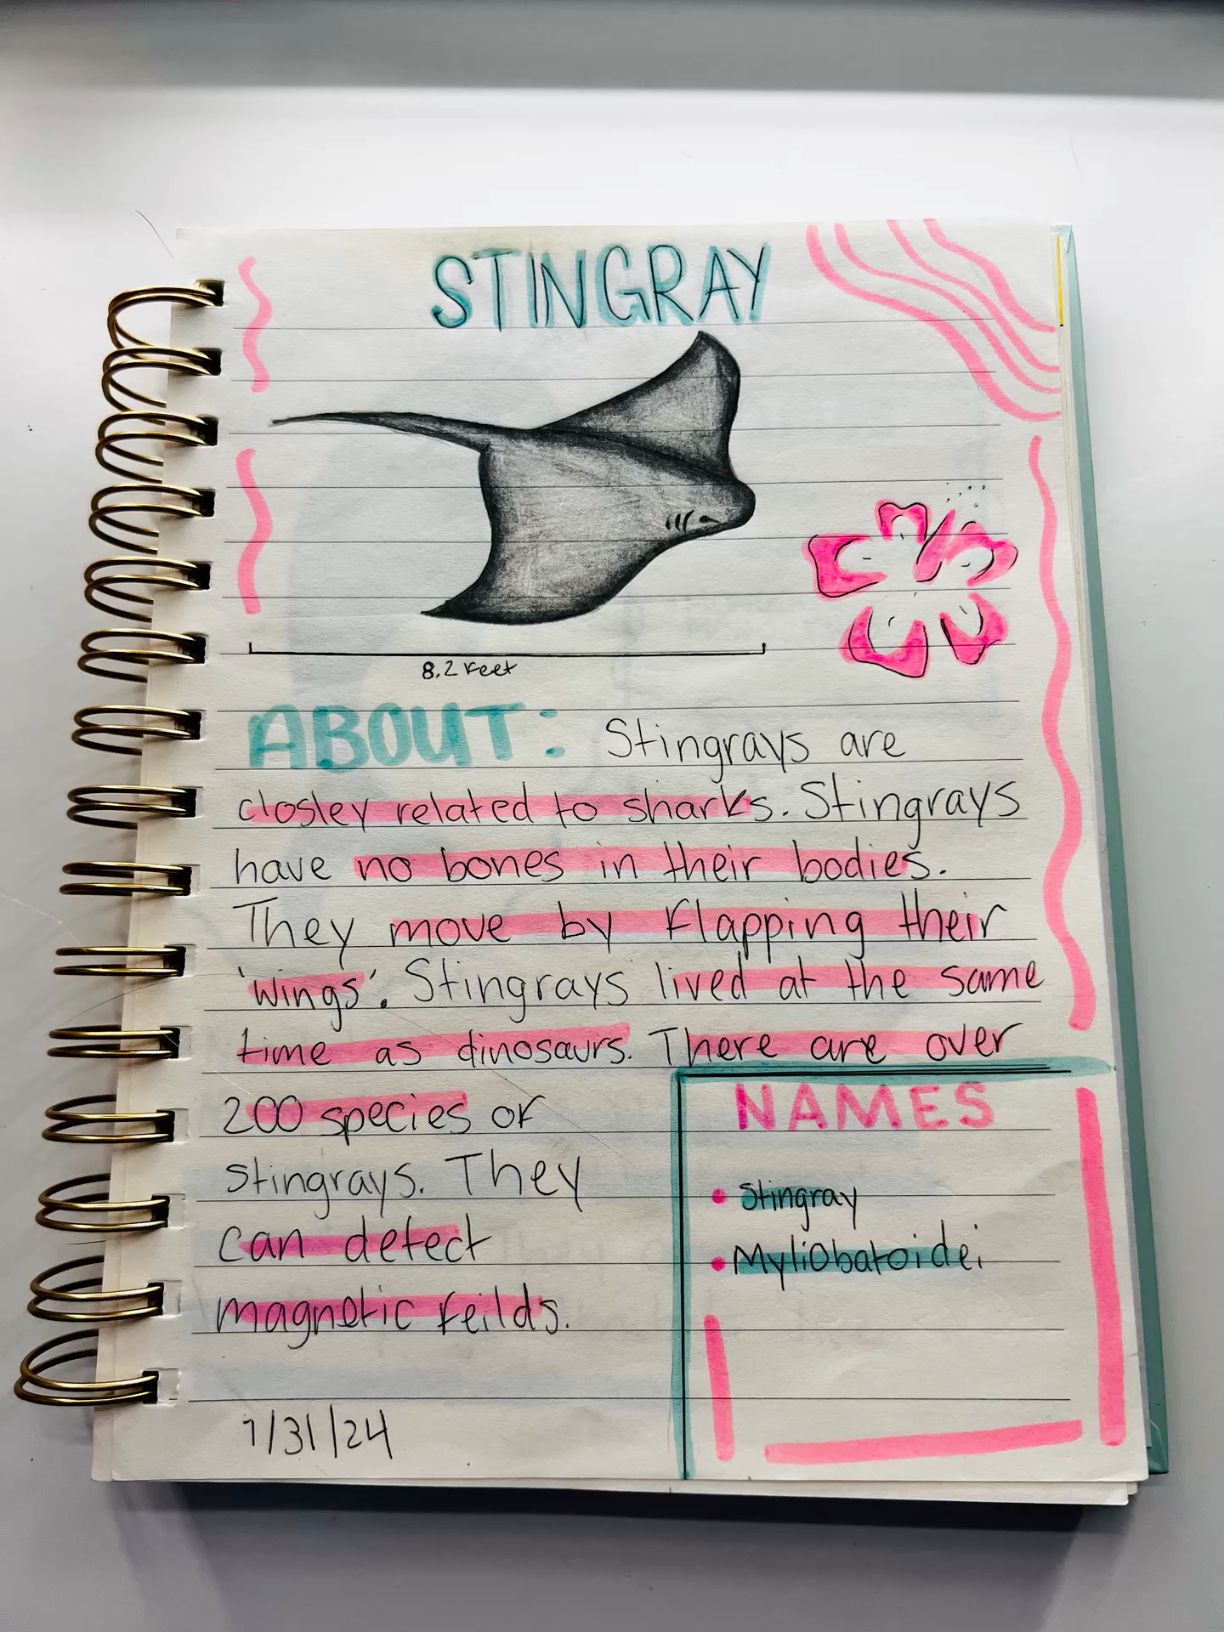 STINGRAY
8.2 feet
ABOUT: Stingrays are
closley related to sharks. Stingrays
have no bones in their bodies.
They move by flapping their
'wings'. Stingrays lived at the same
time as dinosaurs. There are over
200 species of
stingrays. They
can detect
magnetic feilds.
NAMES
• Stingray
• Myliobatoidei
7/31/24